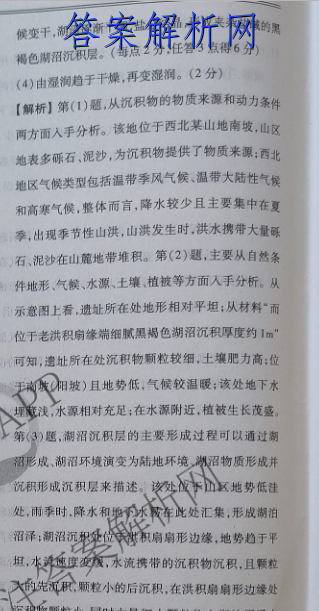 答案解析网
候变干,湖
褐色湖沼沉积层。(每点2分,任答3点得6分)
(4)由湿润趋于干燥,再变湿润。(2分)
【解析】第(1)题,从沉积物的物质来源和动力条件
两方面入手分析。该地位于西北某山地南坡,山区
地表多砾石、泥沙,为沉积物提供了物质来源;西北
地区气候类型包括温带季风气候、温带大陆性气候
和高寒气候,整体而言,降水较少且主要集中在夏
季,出现季节性山洪,山洪发生时,洪水携带大量砾
石、泥沙在山麓地带堆积。第(2)题,主要从自然条
件地形、气候、水源、土壤、植被等方面入手分析。从
示意图上看,遗址所在处地形相对平坦;从材料“而
位于老洪积扇缘端细腻黑褐色湖沼沉积厚度约1m”
可知,遗址所在处沉积物颗粒较细,土壤肥力高;位
于南坡(阳坡)且地势低,气候较温暖;该处地下水
埋藏浅,水源相对充足;在水源附近,植被生长茂盛。
第(3)题,湖沼沉积层的主要形成过程可以通过湖
沼形成、湖沼环境演变为陆地环境、湖沼物质形成并
沉积形成沉积层来描述。该处位于山区地势低洼
处,雨季时,降水和地下水易在此处汇集,形成湖泊
沼泽;湖沼沉积处位于洪积扇扇形边缘,地势趋于平
坦,水流速度变缓,水流携带的沉积物沉积,且颗粒
大的先沉积,颗粒小的后沉积,在洪积扇扇形边缘处
APP
答案解析网